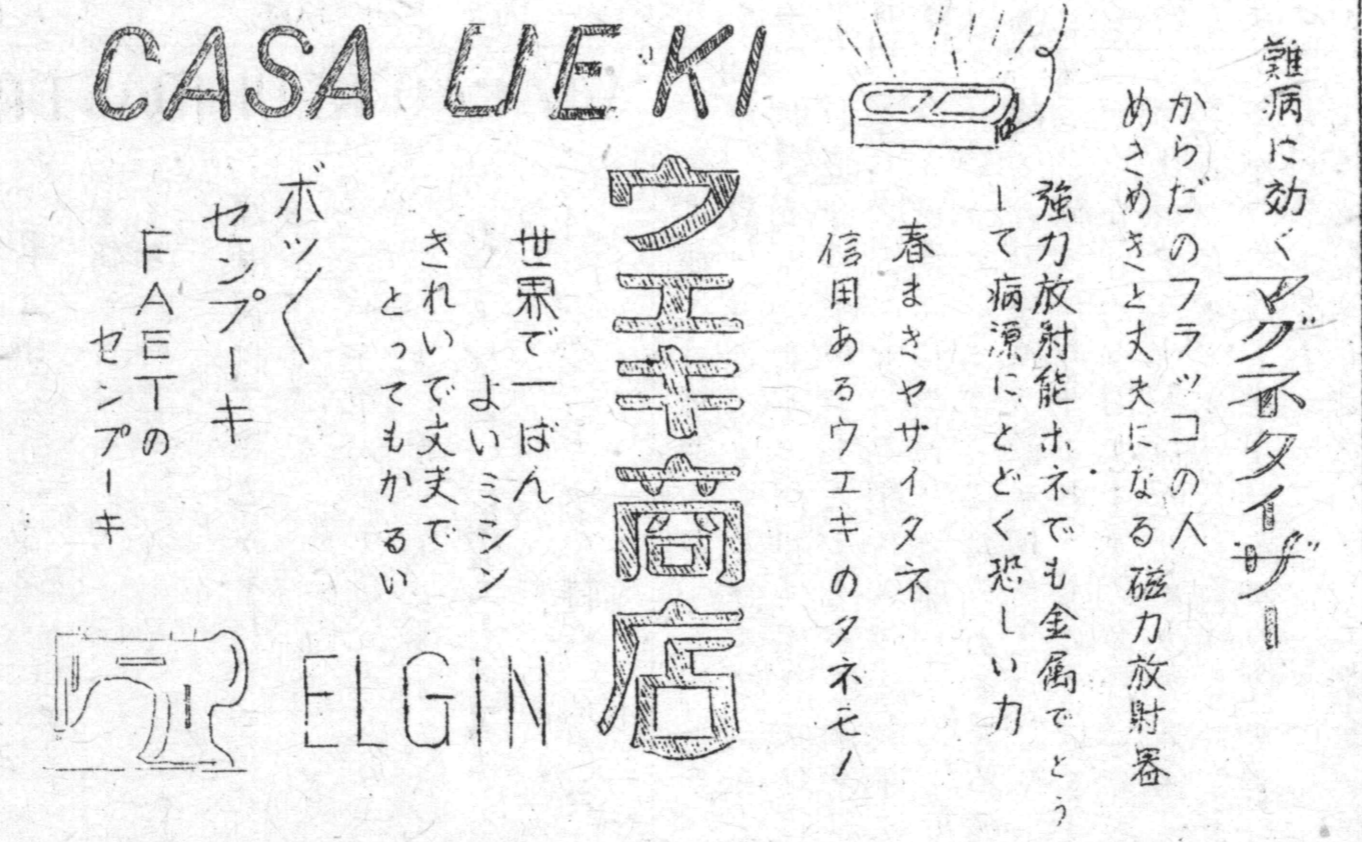 難病に効くマグネタイザー
からだのフラッコの人
めきめきと丈夫になる磁力放射器
強力放射能ホネでも金属でとう
して病源にとどく恐しい力
春まきヤサイタネ
信用あるウエキのタネモノ
CASA UEKI
ウエキ商店
世界で一ばん
よいミシン
きれいで丈夫で
とってもかるい
ELGIN
ボツ〱
センプーキ
FAETの
センプーキ